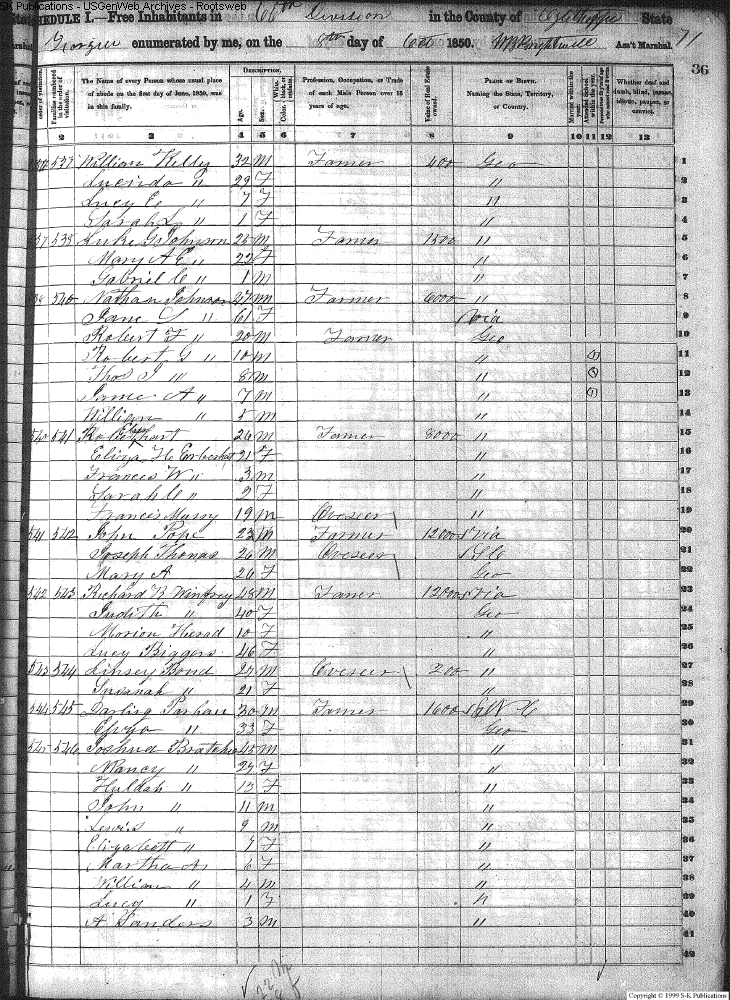 S-K Publications - USGenWeb Archives - Rootsweb
SCHEDULE I.—Free Inhabitants in 66th Division in the County of Oglethorpe State
Georgia enumerated by me, on the 8th day of Oct 1850. Ass't Marshal. 71
36
DESCRIPTION.
Families numbered in the order of visitation.
The Name of every Person whose usual place of abode on the first day of June, 1850, was in this family.
Age.
Sex.
White, black, or mulatto. Color.
Profession, Occupation, or Trade of each Male Person over 15 years of age.
Value of Real Estate owned.
PLACE OF BIRTH. Naming the State, Territory, or Country.
Married within the year.
Attended School within the year.
Whether deaf and dumb, blind, insane, idiotic, pauper, or convict.
2 3 4 5 6 7 8 9 10 11 12 13
537 William Kelly 32 M Farmer 400 Geo 1
Lucinda " 29 F " 2
Lucy C " 7 F " 3
Sarah L " 1 F " 4
37 538 Luke G Johnson 25 M Farmer 1500 " 5
Mary A E " 22 F " 6
Gabriel C " 1 M " 7
540 Nathan Johnson 27 M Farmer 6000 " 8
Jane L " 61 F Via 9
Robert F " 20 M Farmer Geo 10
Robert G " 10 M " 1 11
Thos J " 8 M " 1 12
James A " 7 M " 1 13
William " 5 M " 14
540 541 26 M Farmer 8000 " 15
Eliza H 21 F " 16
Francis W " 3 M " 17
Sarah C " 2 F " 18
Francis Massy 19 M Overseer " 19
541 542 John Pope 23 M Farmer 12000 Via 20
Joseph Thomas 26 M Overseer 21
Mary A 26 F Geo 22
542 543 Richard B Winfrey 48 M Farmer 12000 Via 23
Judith " 40 F Geo 24
Marion 10 F " 25
Lucy Biggers 46 F " 26
543 544 Linsey Bond 27 M Overseer 200 " 27
Susanah " 21 F " 28
544 545 Darling 30 M Farmer 1600 N C 29
" 33 F Geo 30
545 546 Joshua 45 M " 31
Nancy " 29 F " 32
Huldah " 13 F " 33
John " 11 M " 34
Lewis " 9 M " 35
Elizabeth " 7 F " 36
Martha A " 6 F " 37
William " 4 M " 38
Lucy " 1 F " 39
A Sanders 3 M " 40
41
42
22 M
Copyright © 1999 S-K Publications